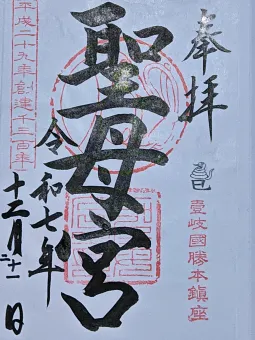 奉拝
壹岐國勝本鎮座
聖母宮
令和七年
十二月二十一日
平成二十九年創建千三百年